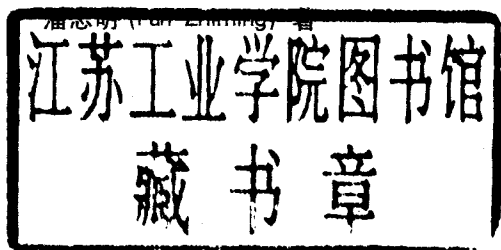 潘志明 (Pan Zhiming) 著
江苏工业学院图书馆
藏书章